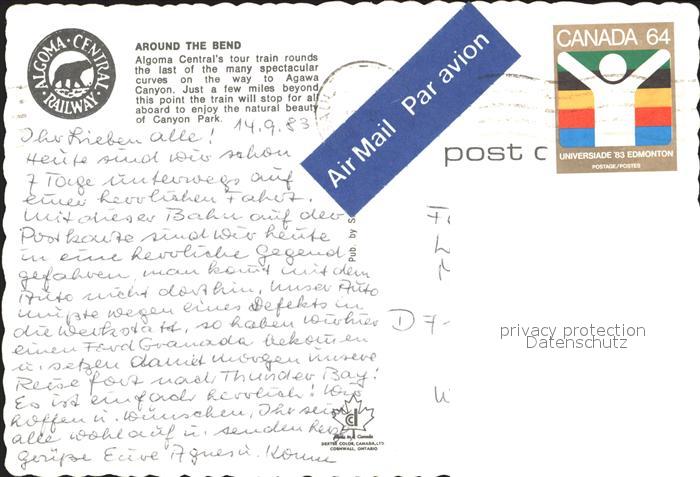 ALGOMA CENTRAL RAILWAY
AROUND THE BEND
Algoma Central's tour train rounds
the last of the many spectacular
curves on the way to Agawa
Canyon. Just a few miles beyond
this point the train will stop for all
aboard to enjoy the natural beauty
of Canyon Park.
14.9.83
Ihr Lieben alle!
Heute sind wir schon
7 Tage unterwegs auf
einer herrlichen Fahrt.
Mit dieser Bahn auf der
Postkarte sind wir heute
in eine herrliche Gegend
gefahren, man kommt mit dem
Auto nicht dorthin. Unser Auto
mußte wegen eines Defekts in
die Werkstatt, so haben wir hier
einen Ford Granada bekommen
u. setzen damit morgen unsere
Reise fort nach Thunder Bay!
Es ist einfach herrlich! Wir
hoffen u. wünschen, Ihr seid
alle wohlauf u. senden herz.
Grüße Eure Agnes u.
Air Mail Par avion
CANADA 64
UNIVERSIADE '83 EDMONTON
POSTAGE/POSTES
post c
Pub. by S
D 7-
privacy protection
Datenschutz
Made in Canada
DEXTER COLOR, CANADA, LTD
CORNWALL, ONTARIO